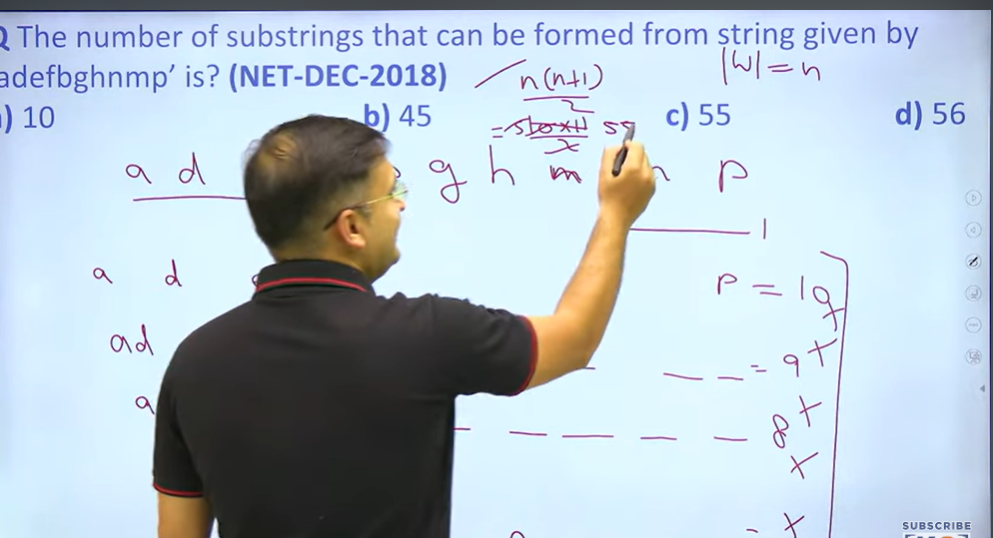 Q The number of substrings that can be formed from string given by
adefbghnmp' is? (NET-DEC-2018)
) 10 b) 45 c) 55 d) 56
n(n+1)
2
|W| = n
=
a d g h m n p
1
a d p = 10
ad = 9 +
a 8 +
+
- +
SUBSCRIBE